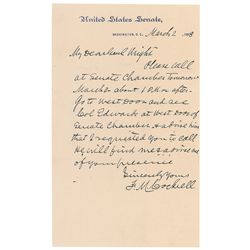 United States Senate,
WASHINGTON, D.C. March 2
My dear Wright
Please call
at Senate Chamber tomorrow
March 3 about 1 P.M. or after.
Go to West Door and see
Col Edwards at West Door of
Senate Chamber & advise him
that I requested you to call
He will find me & advise me
of your presence
Sincerely Yours
F. M. Cockrell